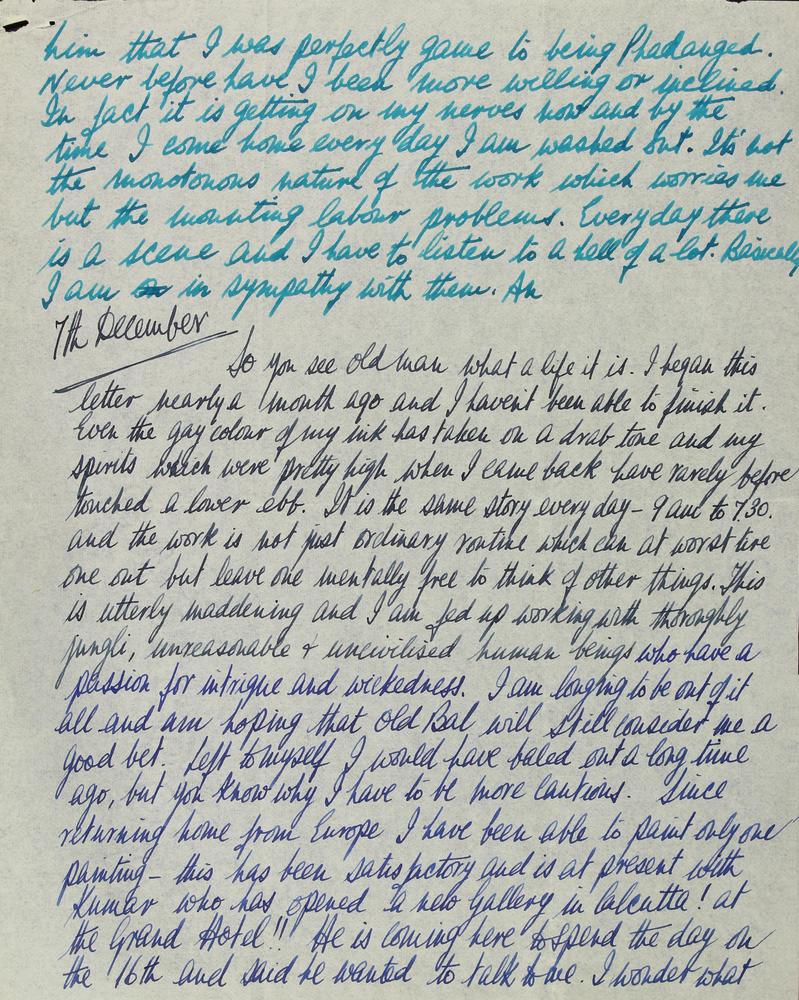 him that I was perfectly game to being Phadanged.
Never before have I been more willing or inclined.
In fact it is getting on my nerves now and by the
time I come home every day I am washed out. It's not
the monotonous nature of the work which worries me
but the mounting labour problems. Everyday there
is a scene and I have to listen to a hell of a lot. Basically
I am in sympathy with them. An
7th December
So you see old man what a life it is. I began this
letter nearly a month ago and I haven't been able to finish it.
Even the gay colour of my ink has taken on a drab tone and my
spirits which were pretty high when I came back have rarely before
touched a lower ebb. It is the same story every day - 9 am to 7.30.
and the work is not just ordinary routine which can at worst tire
one out but leave one mentally free to think of other things. This
is utterly maddening and I am fed up working with thoroughly
jungli, unreasonable & uncivilised human beings who have a
passion for intrigue and wickedness. I am longing to be out of it
all and am hoping that Old Bal will still consider me a
good bet. Left to myself I would have baled out a long time
ago, but you know why I have to be more cautious. Since
returning home from Europe I have been able to paint only one
painting - this has been satisfactory and is at present with
Kumar who has opened a new Gallery in Calcutta! at
the Grand Hotel!! He is coming here to spend the day on
the 16th and said he wanted to talk to me. I wonder what